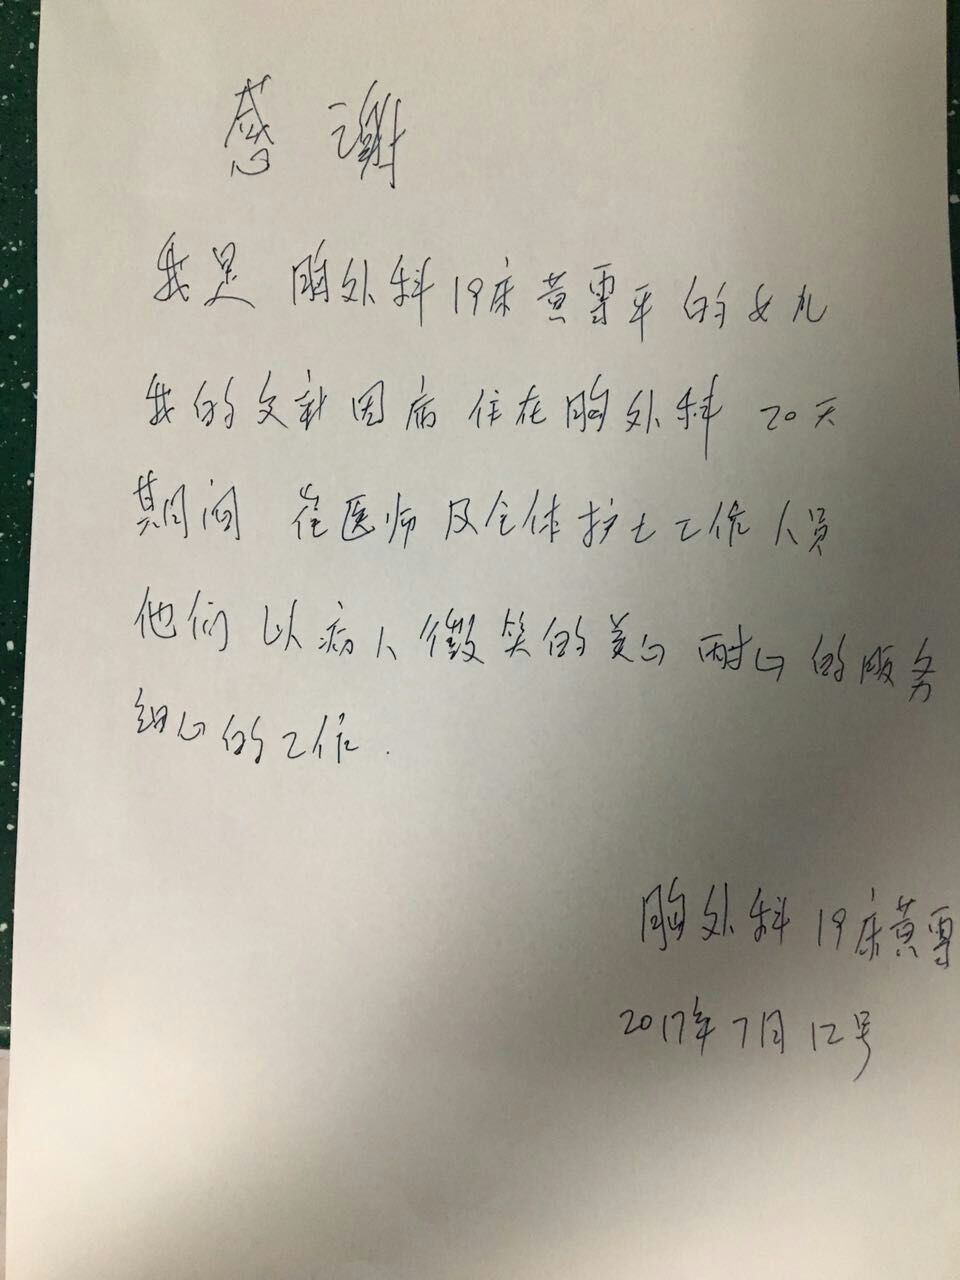 感谢
我是 胸外科19床黄雪平的女儿
我的父亲因病 住在胸外科 20天
期间 崔医师及全体护士工作人员
他们 以病人微笑的关心 耐心的服务
细心的工作.
胸外科 19床黄雪
2017年7月12号